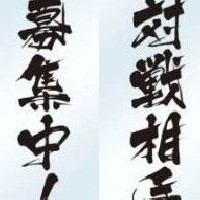 対戦相手
募集中！